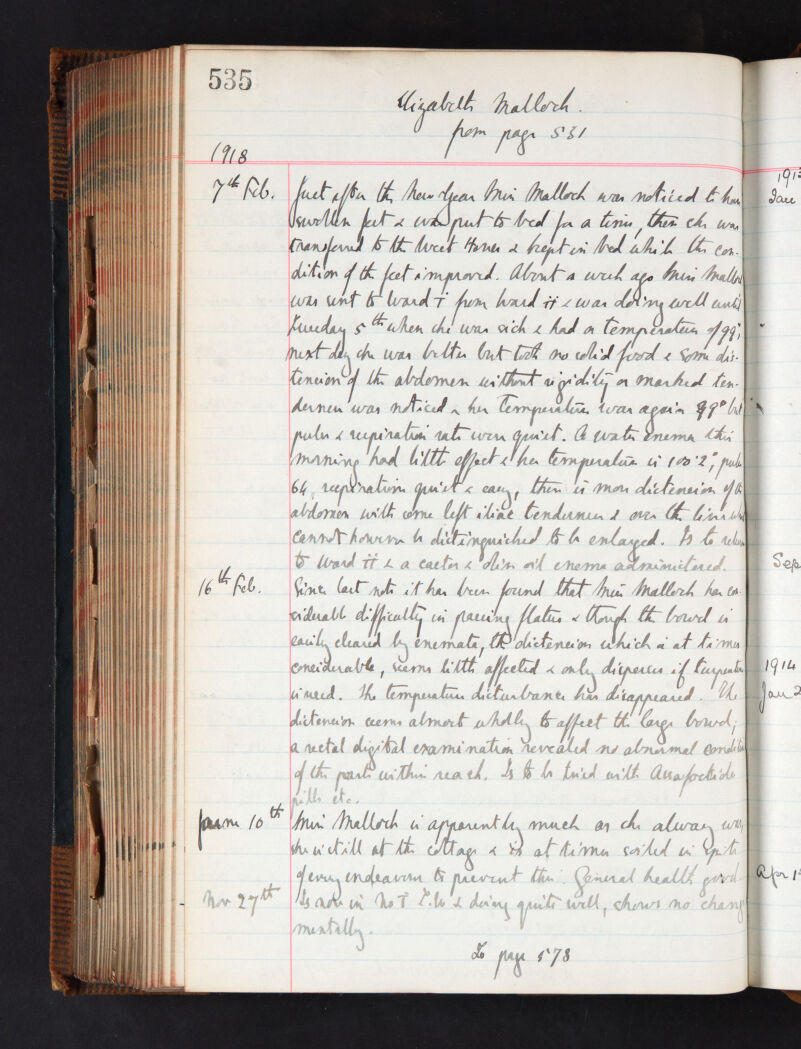 535
Elizabeth Malloch.
from page 531
1918
7th Feb. Just after the New Year Miss Malloch was noticed to have
swollen feet & was put to bed for a time, then she was
transferred to the West House & kept in bed while the con-
dition of the feet improved. About a week ago Miss Malloch
was sent to Ward i from Ward ii & was doing well until
Tuesday 5th when she was sick & had a temperature of 99°,
next day she was better but took no solid food & some dis-
tension of the abdomen without rigidity or marked ten-
derness was noticed & her temperature was again 99° but
pulse & respiration rate were quiet. A water enema this
morning had little effect & her temperature is 100.2°, pulse
64, respiration quiet & easy, there is more distension of the
abdomen with some left iliac tenderness & over the liver which
cannot however be distinguished to be enlarged. Is to return
to Ward ii & a castor & olive oil enema administered.
16th Feb. Since last note it has been found that Miss Malloch has con-
siderable difficulty in passing flatus & though the bowel is
easily cleared by enemata, the distension which is at times
considerable, seems little affected & only disperses if turpentine
is used. The temperature disturbance has disappeared. The
distension seems almost wholly to affect the large bowel;
a rectal digital examination revealed no abnormal condition
of the parts within reach. Is to be tried with Assafoetida
pills etc.
June 10th Miss Malloch is apparently much as she always was,
she is still at the cottage & is at times soiled in spite
of every endeavour to prevent this. General health good.
Nov 27th Is now in No i & doing quite well, shows no change
mentally.
To page 578
191
Jan
Sep
1914
Jan 2
Apr 1